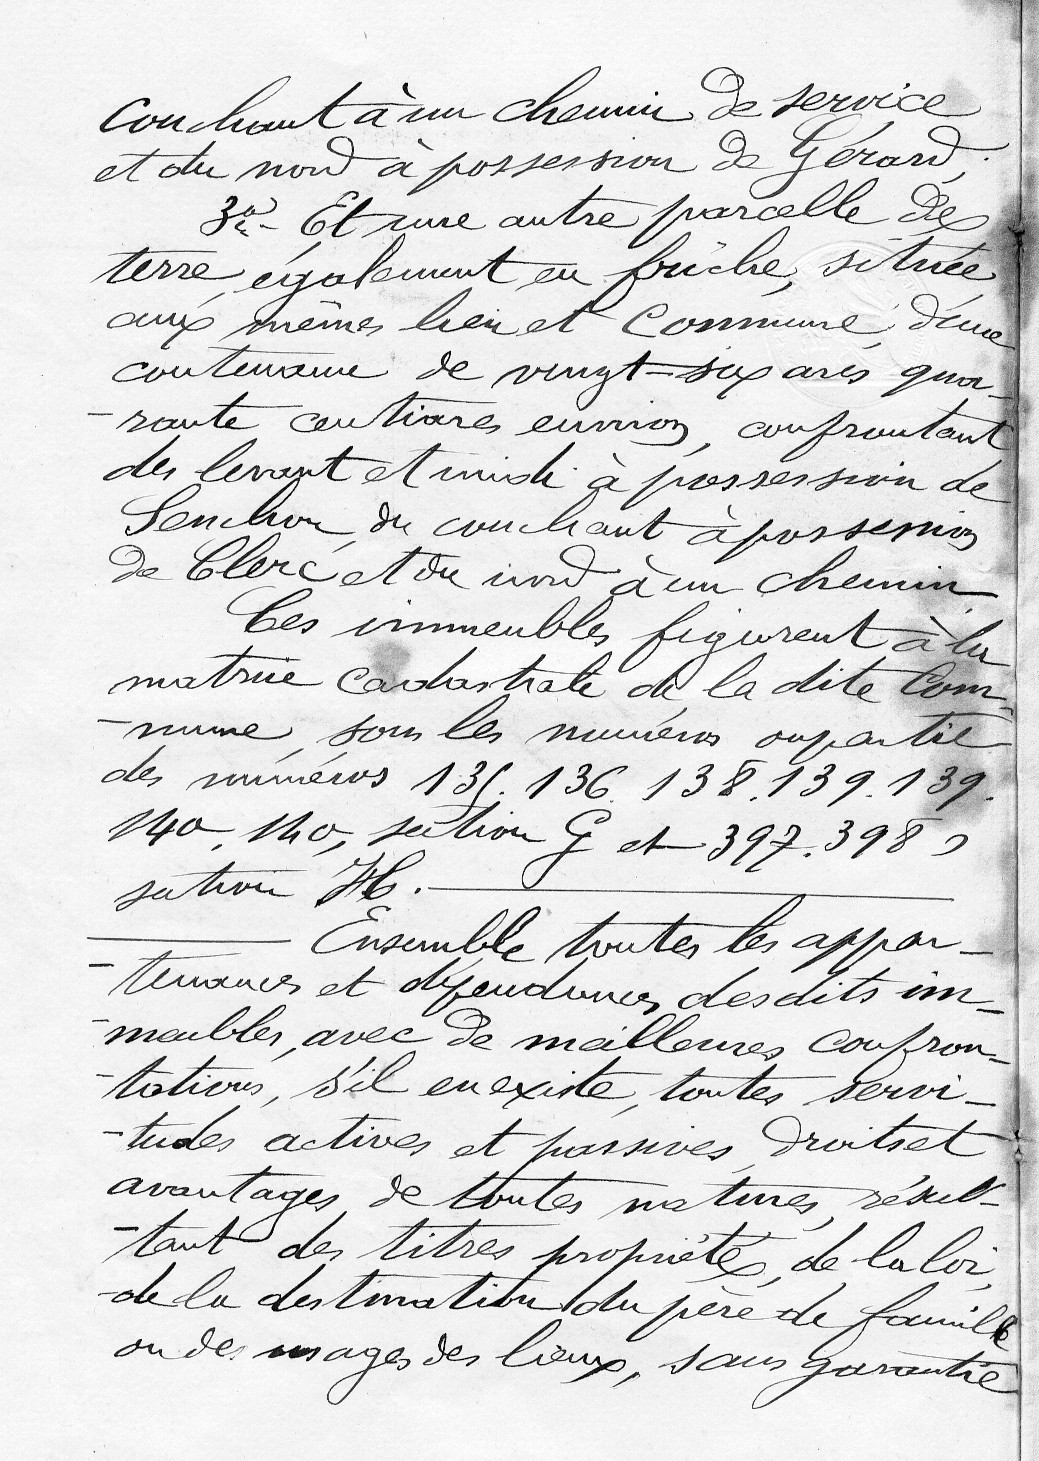 couchant à un chemin de service
et du nord à possession de Gérard;
3°- Et une autre parcelle de
terre, également en friche, située
aux mêmes lieu et commune, d'une
contenance de vingt-six ares qua-
-rante centiares environ, confrontant
des levant et midi à possession de
du couchant à possession
de Clerc et du nord à un chemin
Ces immeubles figurent à la
matrice cadastrale de la dite Com-
-mune, sous les numéros ou partie
des numéros 135. 136. 138. 139. 139.
140, 140, section G et 397. 398,
section H.
Ensemble toutes les appar-
-tenances et dépendances desdits im-
-meubles, avec de meilleures confron-
-tations, s'il en existe, toutes servi-
-tudes actives et passives, droits et
avantages de toutes natures, résul-
-tant des titres propriété, de la loi,
de la destination du père de famille
ou des usages des lieux, sans garantie